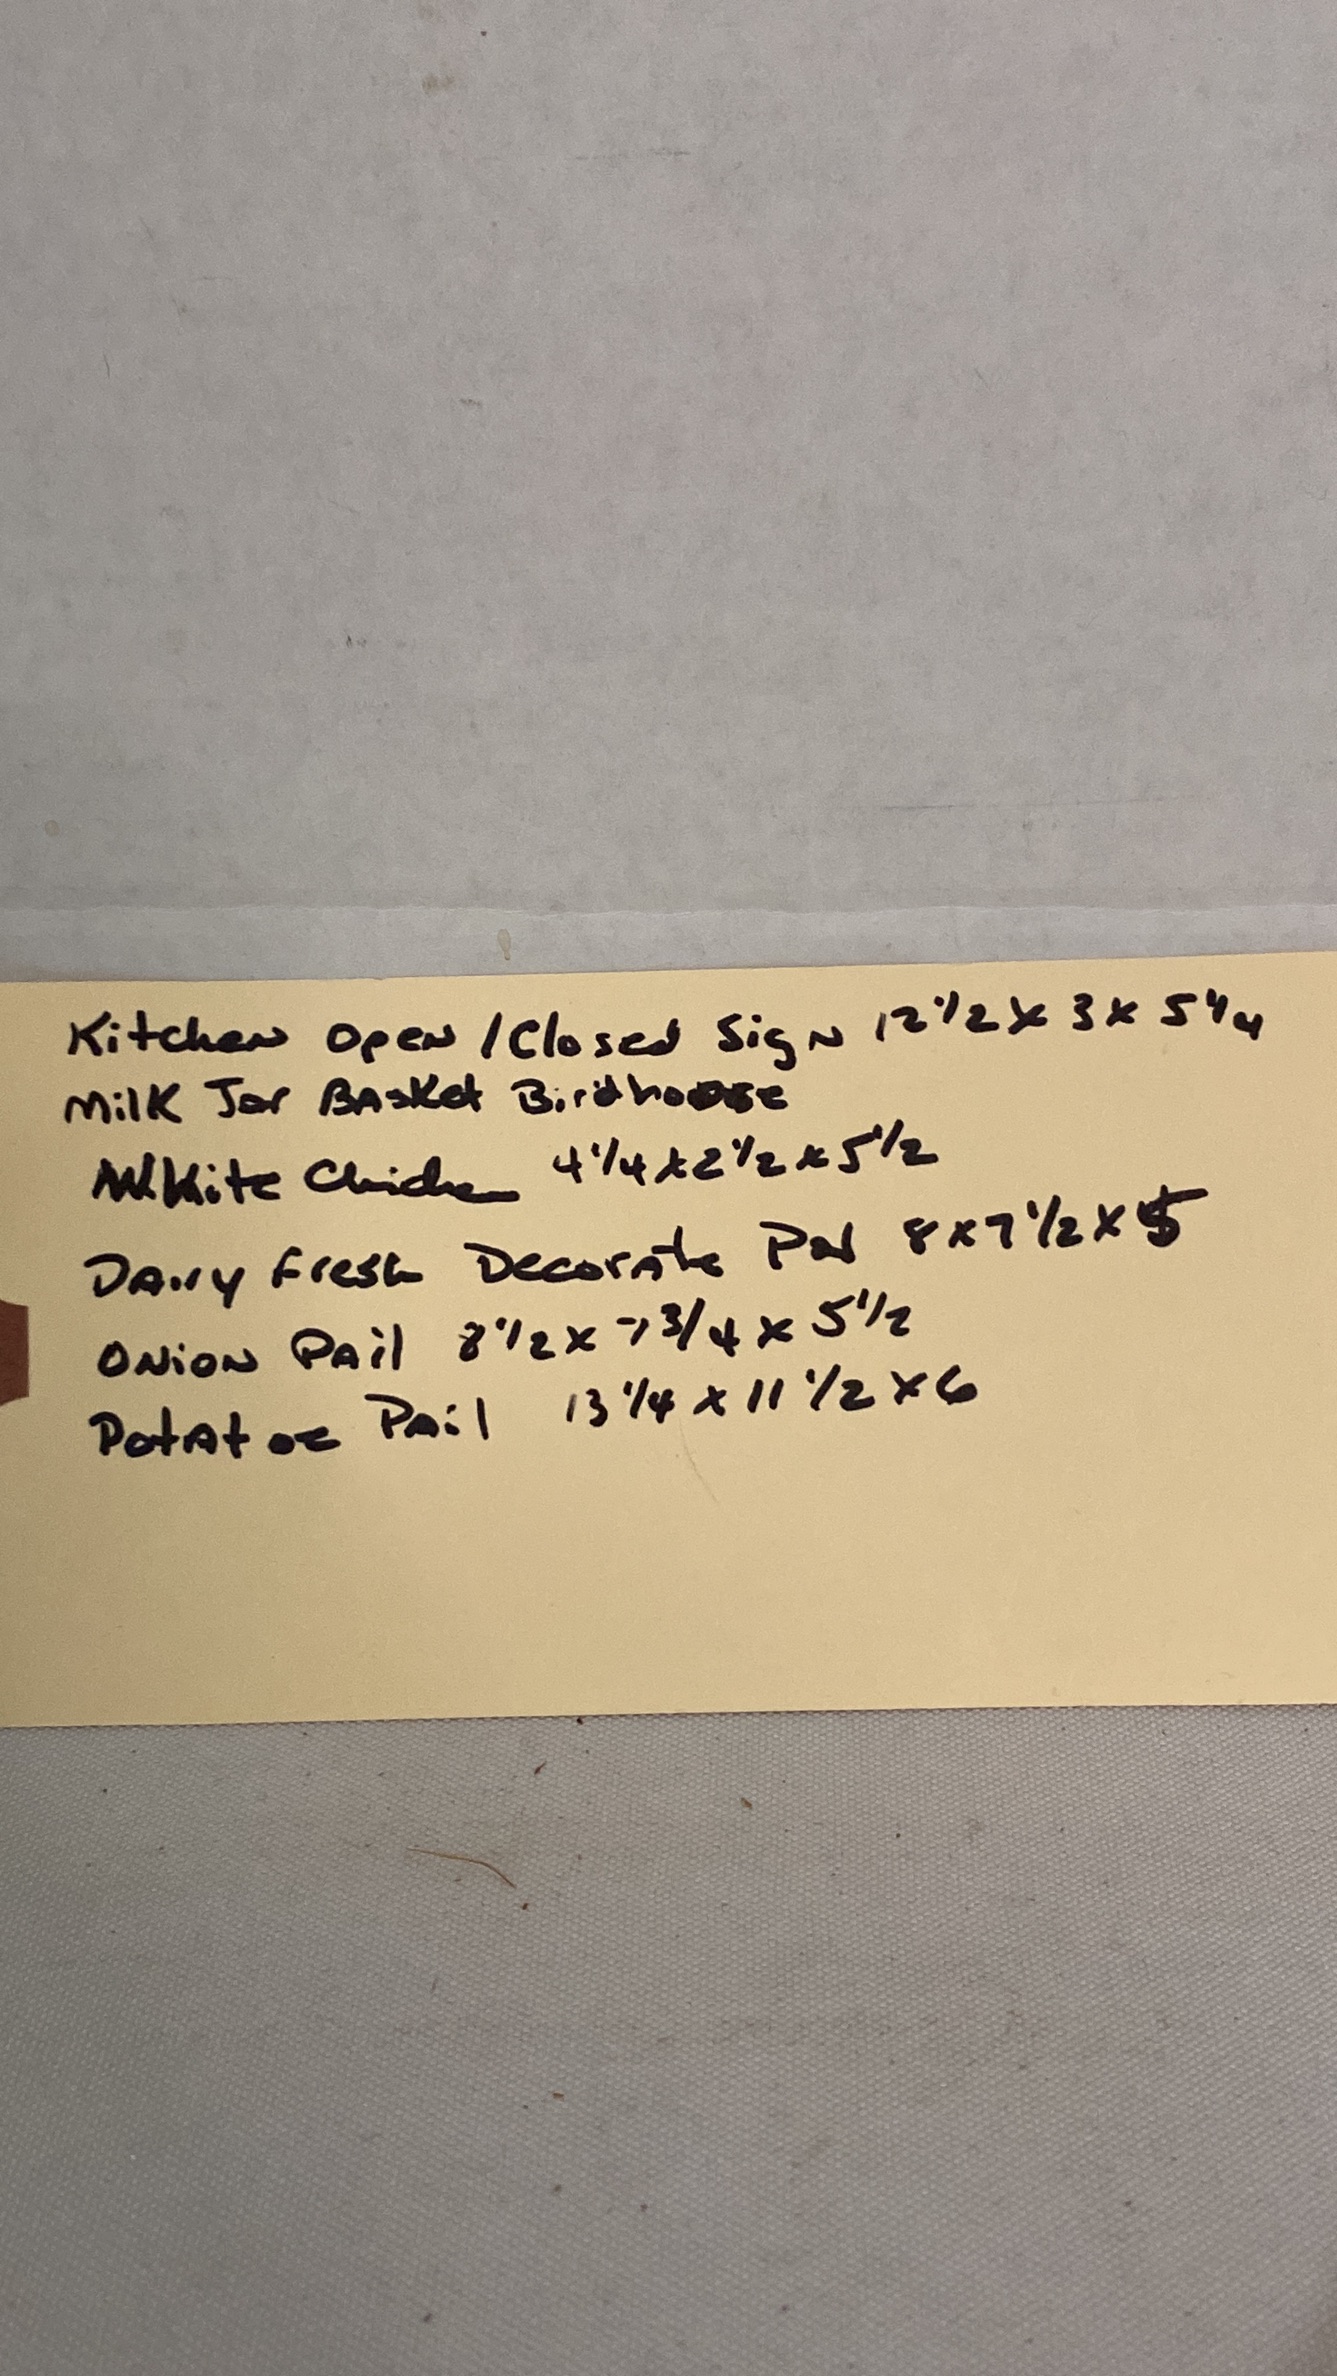 Kitchen Open / Closed Sign 12 1/2 x 3 x 5 1/4
Milk Jar Basket Birdhouse
White Chicken 4 1/4 x 2 1/2 x 5 1/2
Dairy Fresh Decorate Pal 8 x 7 1/2 x 5
Onion Pail 8 1/2 x 7 3/4 x 5 1/2
Potatoe Pail 13 1/4 x 11 1/2 x 6